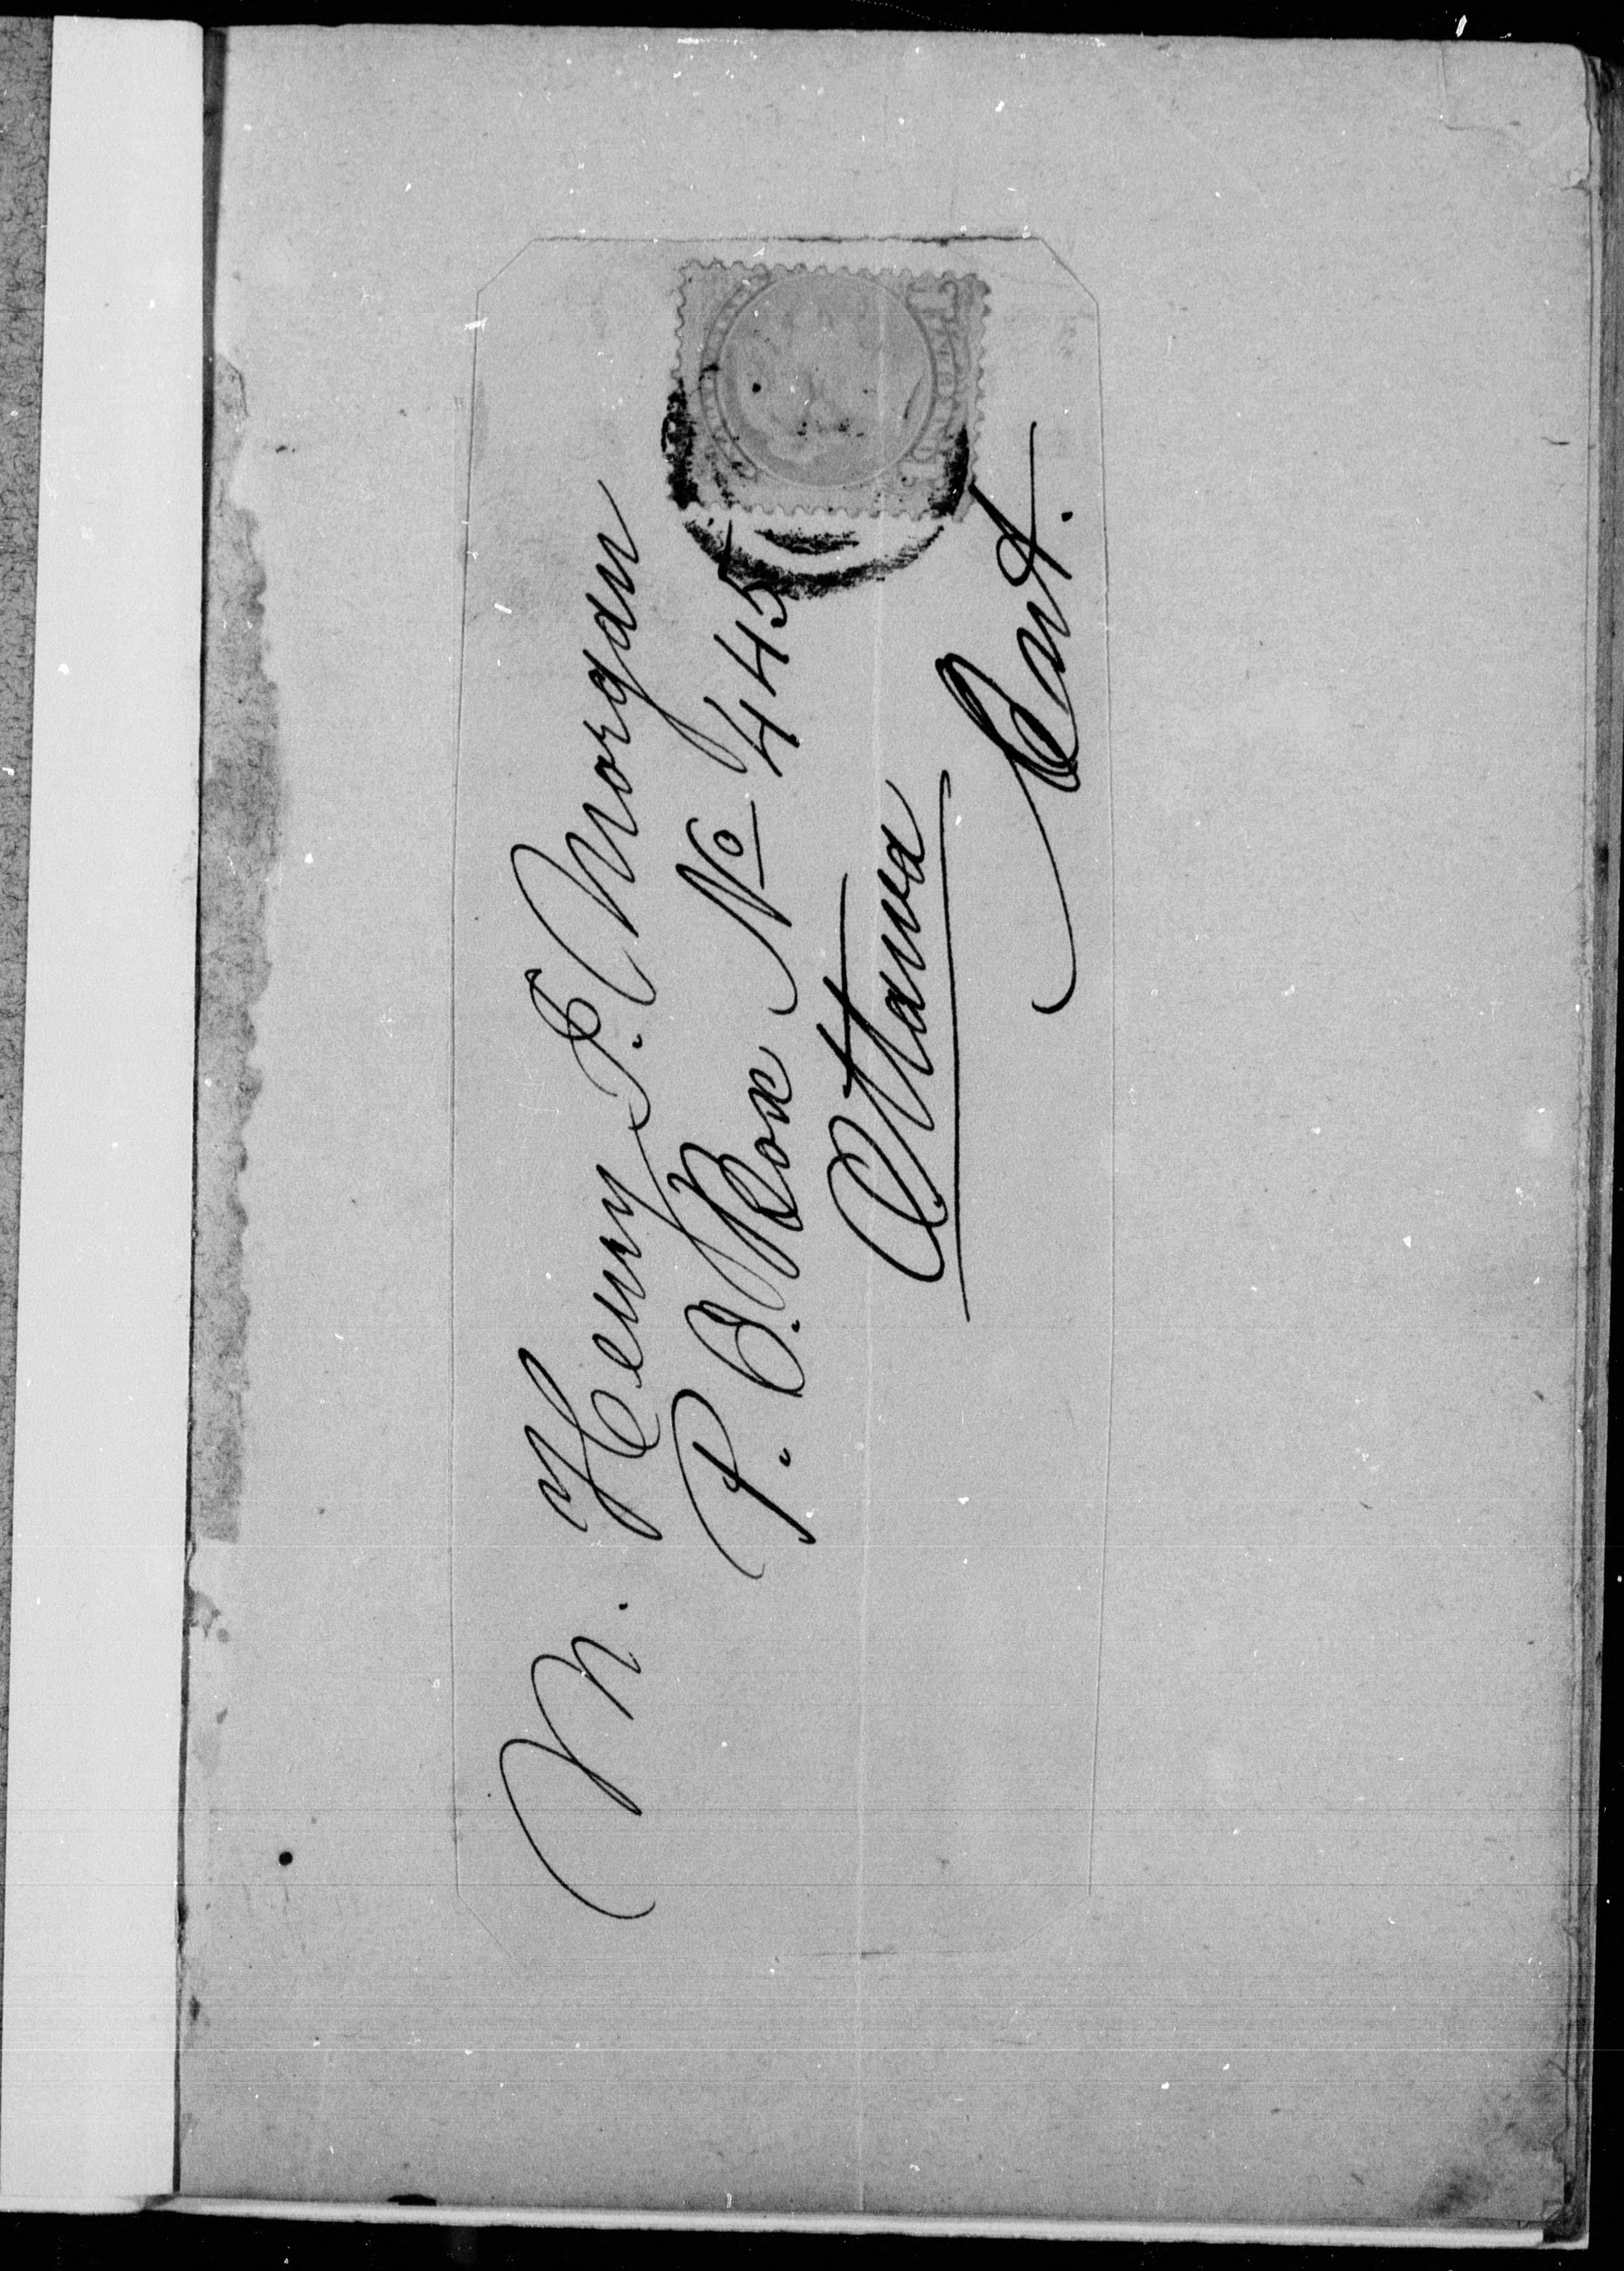 M. Henry J. Morgan
P. O. Box No 445
Ottawa
Ont.